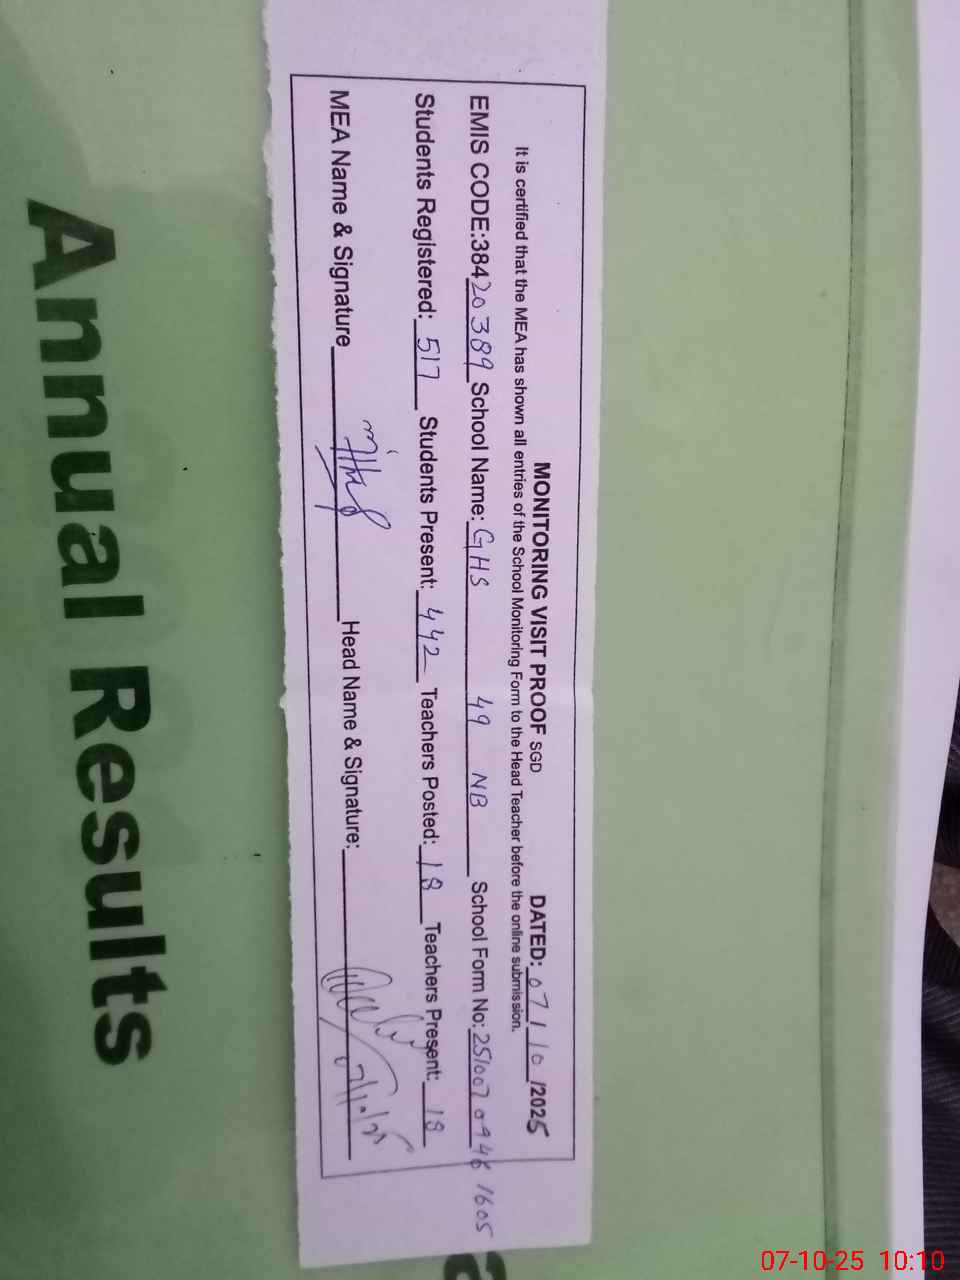 MONITORING VISIT PROOF SGD DATED: 07/10/2025
It is certified that the MEA has shown all entries of the School Monitoring Form to the Head Teacher before the online submission.
EMIS CODE:38420389 School Name: GHS 49 NB School Form No: 251007 0946 1605
Students Registered: 517 Students Present: 442 Teachers Posted: 18 Teachers Present: 18
MEA Name & Signature Head Name & Signature:
Annual Results
07-10-25 10:10